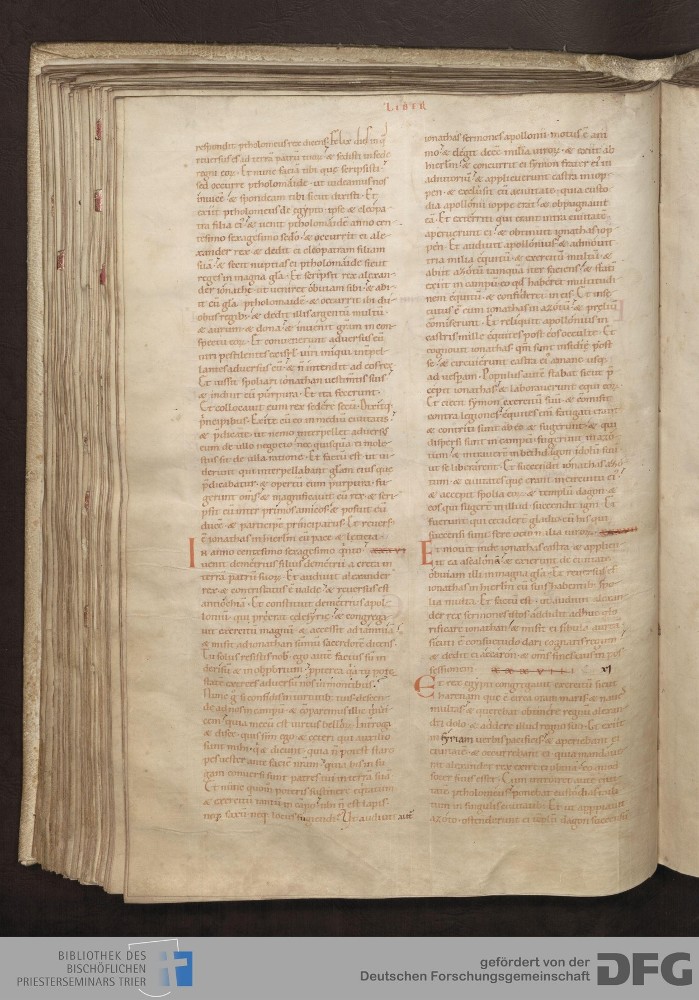 LIBER
respondit ptholomeus rex dicens. Felix dies in q̄
reuersus es ad terrā patrū tuoꝝ · & sedisti in sede
regni eoꝝ · Et nunc faciā tibi que scripsisti ·
sed occurre ptholomaide · ut uideamus nos
inuicē · & spondeam tibi sicut dixisti · Et
exiit ptholomeus de egypto · ipse & cleopa-
tra filia ei · & uenit ptholomaide anno cen-
tesimo sexagesimo sedo · & occurrit ei ale-
xander rex · & dedit ei cleopatram filiam
suā · & fecit nuptias ei ptholomaide sicut
reges in magna gła · Et scripsit rex alexan-
der ionathe · ut ueniret obuiam sibi · & abi-
it cū gła ptholomaide · & occurrit ibi duo-
bus regibꝰ · & dedit illis argentū multū ·
& aurum · & dona · & inuenit grām in con-
spectu eoꝝ · Et conuenerunt aduersus eū
uiri pestilentes ex isrł · uiri iniqui interpel-
lantes aduersus eū · & ñ intendit ad eos rex ·
Et iussit spoliari ionathan uestimtis suis ·
& indui eū purpura · Et ita fecerunt ·
Et collocauit eum rex sedere secū · Dixitq;
principibus · Exite cū eo in mediū ciuitatis ·
& p̄dicate · ut nemo interpellet aduersꝰ
eum de ullo negotio · nec quisquā ei mole-
stus sit de ulla ratione · Et factū est · ut ui-
derunt qui interpellabant głam eius que
p̄dicabatur · & opertū eum purpura · fu-
gerunt oms · & magnificauit eū rex · & scri-
psit eū inter primos amicos · & posuit eū
ducē · & participē principatus · Et reuers-
ē ionathas in hierłm cū pace & leticia ·
In anno centesimo sexagesimo quito
uenit demetrius filius demetrii a creta in
terrā patrū suoꝝ · Et audiuit alexander
rex · & contristatus ē ualde · & reuersus est
antiochiā · Et constituit demetrius apol-
loniū · qui preerat celesyrie · & congrega-
uit exercitū magnū · & accessit ad iamniā ·
& misit ad ionathan summū sacerdotē dicens ·
Tu solus resistis nob · ego autē factus sū in
derisū · & in obprobrium · ppterea quia tu pote-
state exerces aduersū nos in montibus ·
Nunc g si confidis in uirtutibꝰ tuis · descen-
de ad nos in campū · & cōparemus illic quit
cem · quia mecū est uirtus belloꝝ · Interroga
& disce · quis sum ego · & ceteri qui auxilio
sunt mihi · q; & dicunt · quia ñ potest stare
pes uester ante faciē nrām · quia bis in fu-
gam conuersi sunt patres tui in terra suā
Et nunc quom̄ poteris sustinere equitatum
& exercitū tantū in campo · ubi ñ est lapis ·
neq; saxū · neq; locus fugiendi · Ut audiuit autē
ionathas sermones apollonii · motus ē ani-
mo · & elegit decē milia uiroꝝ · & exiit ab
hierłm · & concurrit ei symon frater ei in
adiutoriū · & applicuerunt castra in iop-
pen · & exclusit eū a ciuitate · quia custo-
dia apollonii ioppe erat · & obpugnauit
eā · Et exterriti qui erant intra ciuitatē ·
aperuerunt ei · & obtinuit ionathas iop-
pen · Et audiuit apollonius · & admouit
tria milia equitū · & exercitū multū · &
abiit azotū tamquā iter faciens · & statī
exiit in campū · eo qd haberet multitudi-
nem equitū · & confideret in eis · Et inse-
cutus ē eum ionathas in azotū · & preliū
comiserunt · Et reliquit apollonius in
castris mille equites post eos occulte · Et
cognouit ionathas qm̄ sunt insidie post
se · & circuierunt castra ei a mane usq;
ad uesperam · Populus autē stabat sicut p̄-
cepit ionathas · & laborauerunt equi eoꝝ ·
Et eiecit symon exercitū suū · & comisit
contra legionē · equites enī fatigati erant ·
& contriti sunt ab eo · & fugerunt · & qui
dispersi sunt in campū · fugerunt in azo-
tum · & intrauert in bethdagon idolū suū ·
ut se liberarent · Et succendit ionathas azo-
tum · & ciuitates que erant in circuitu ei ·
& accepit spolia eoꝝ · & templū dagon · &
eos qui fugert in illud · succendit igni · Et
fuerunt qui ceciderт gladio · cū his qui
succensi sunt · fere octo milia uiroꝝ ·
Et mouit inde ionathas castra · & applicu-
it ea ascalonā · & exierunt de ciuitate
obuiam illi in magna gła · Et reuersus est
ionathas in hierłm cū suis habentibꝰ spo-
lia multa · Et factū est · ut audiuit alexan-
der rex sermones istos · addidit adhuc glo-
rificare ionathan · & misit ei fibulā aureā ·
sicuti ē consuetudo dari cognatis regum ·
& dedit ei accaron · & oms fines eius in pos-
sessionem · XI
Et rex egypti congregauit exercitū sicut
harenam que ē circa oram maris · & naues
multas · & querebat obtinere regnū alexan-
dri dolo · & addere illud regno suo · Et exiit
in syriam uerbis pacificis · & aperiebant ei
ciuitates · & occurrebant ei · quia mandaue-
rat alexander rex exire ei obuiā · eo quod
socer suus esset · Cum introiret autē ciui-
tatē ptholomeus · ponebat custodias mili-
tum in singulis ciuitatibꝰ · Et ut appropiauit
azoto · ostenderunt ei templū dagon succensū
BIBLIOTHEK DES
BISCHÖFLICHEN
PRIESTERSEMINARS TRIER
gefördert von der
Deutschen Forschungsgemeinschaft
DFG